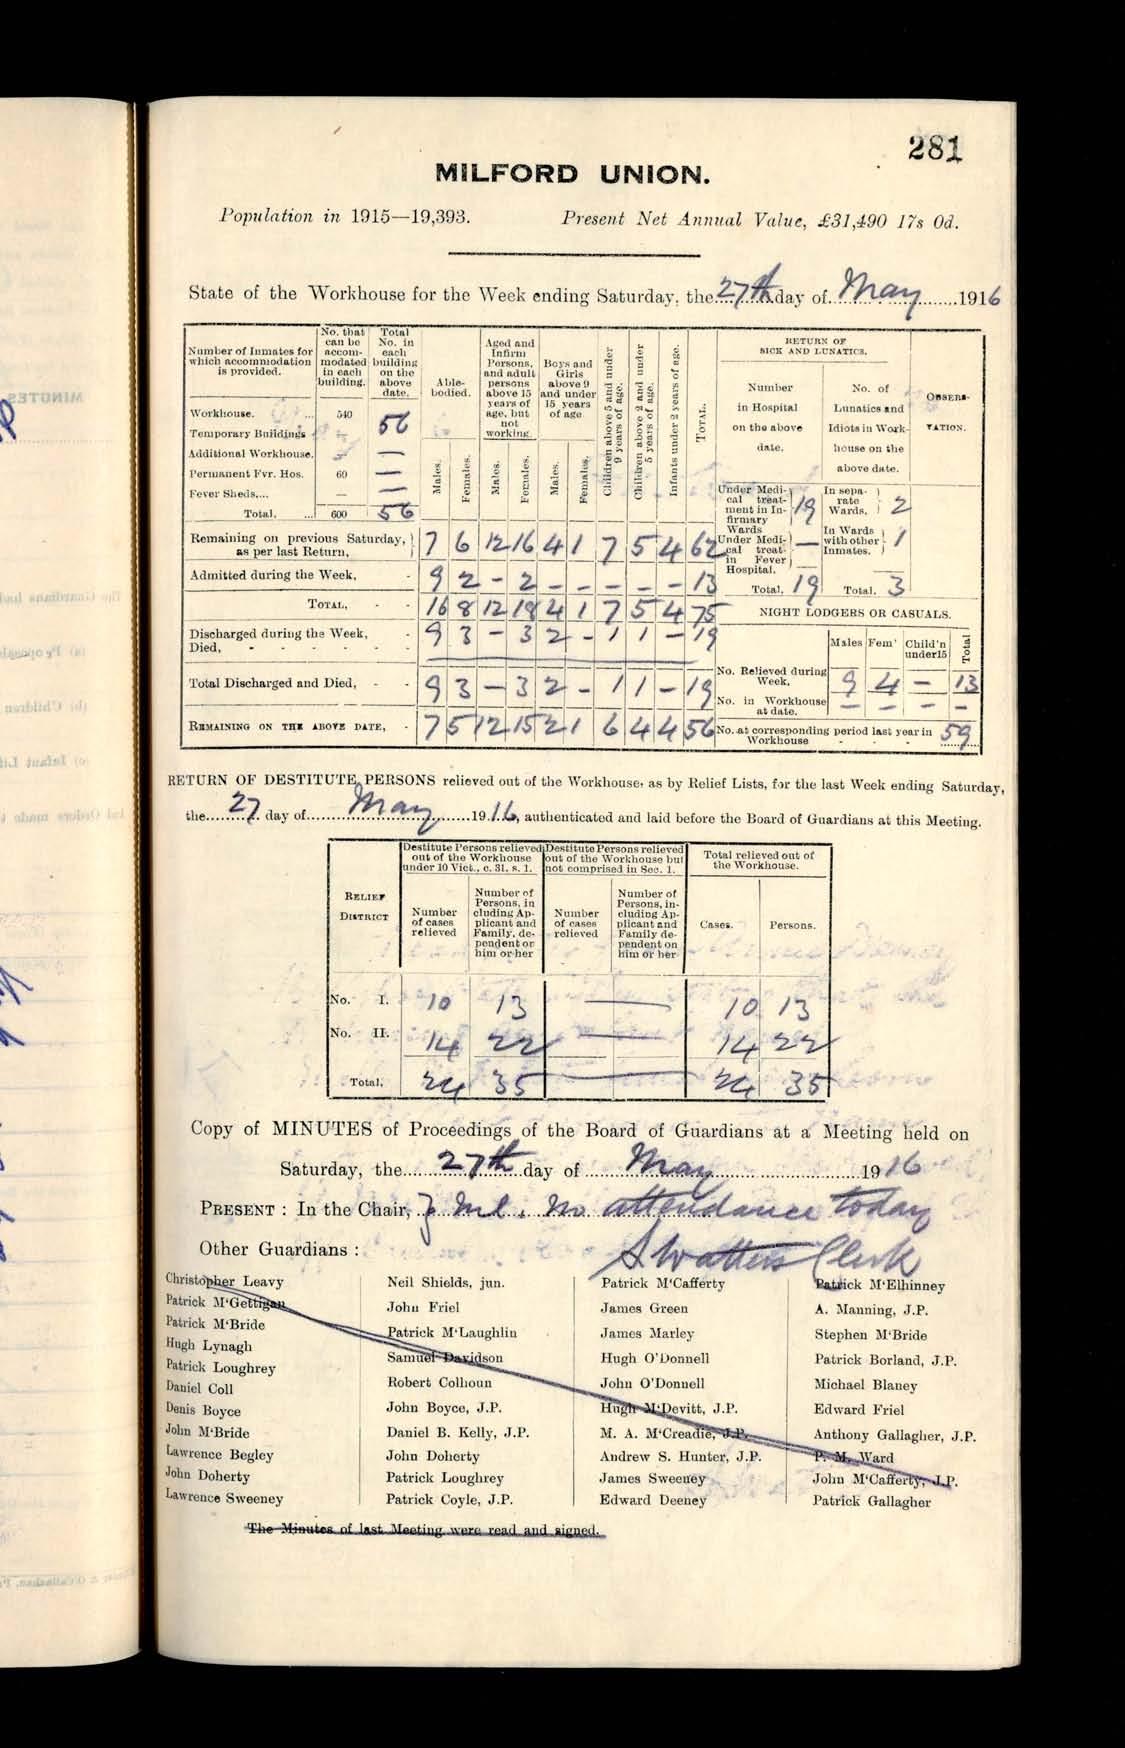 281
MILFORD UNION.
Population in 1915—19,393. Present Net Annual Value, £31,490 17s 0d.
State of the Workhouse for the Week ending Saturday, the 27th day of May 1916
Number of Inmates for which accommodation is provided. No. that can be accommodated in each building. Total No. in each building on the above date. Able-bodied. Aged and Infirm Persons, and adult persons above 15 years of age, but not working. Boys and Girls above 9 and under 15 years of age. Children above 5 and under 9 years of age. Children above 2 and under 5 years of age. Infants under 2 years of age. TOTAL. RETURN OF SICK AND LUNATICS. OBSERVATION.
Males. Females. Males. Females. Males. Females.
Number in Hospital on the above date. No. of Lunatics and Idiots in Workhouse on the above date.
Workhouse. ... 540 56
Temporary Buildings —
Additional Workhouse. — —
Permanent Fvr. Hos. 60 —
Fever Sheds,... — —
Total, ... 600 56
Under Medical treatment in Infirmary Wards 19 In separate Wards, 2
Under Medical treat- in Fever Hospital. — In Wards with other Inmates. 1
Total, 19 Total. 3
Remaining on previous Saturday, as per last Return, 7 6 12 16 4 1 7 5 4 62
Admitted during the Week, - 9 2 - 2 - - - - - 13
TOTAL, - - 16 8 12 18 4 1 7 5 4 75
Discharged during the Week, - 9 3 - 3 2 - 1 1 - 19
Died, - - - - - -
Total Discharged and Died, - - 9 3 - 3 2 - 1 1 - 19
REMAINING ON THE ABOVE DATE, - 7 5 12 15 2 1 6 4 4 56
NIGHT LODGERS OR CASUALS.
Males Fem' Child'n under 15 Total
No. Relieved during Week, 9 4 — 13
No. in Workhouse at date. — — — —
No. at corresponding period last year in Workhouse - - - 59
RETURN OF DESTITUTE PERSONS relieved out of the Workhouse, as by Relief Lists, for the last Week ending Saturday,
the 27 day of May 1916, authenticated and laid before the Board of Guardians at this Meeting.
RELIEF DISTRICT Destitute Persons relieved out of the Workhouse under 10 Vict., c. 31, s. 1. Destitute Persons relieved out of the Workhouse but not comprised in Sec. 1. Total relieved out of the Workhouse.
Number of cases relieved Number of Persons, in cluding Applicant and Family, dependent on him or her Number of cases relieved Number of Persons, including Applicant and Family dependent on him or her Cases. Persons.
No. I. 10 13 — 10 13
No. II. 14 22 — 14 22
Total, 24 35 — 24 35
Copy of MINUTES of Proceedings of the Board of Guardians at a Meeting held on
Saturday, the 27th day of May 1916
PRESENT : In the Chair, no attendance today
Other Guardians : S Watters Clerk
Christopher Leavy
Patrick M'Gettigan
Patrick M'Bride
Hugh Lynagh
Patrick Loughrey
Daniel Coll
Denis Boyce
John M'Bride
Lawrence Begley
John Doherty
Lawrence Sweeney
Neil Shields, jun.
John Friel
Patrick M'Laughlin
Samuel Davidson
Robert Colhoun
John Boyce, J.P.
Daniel B. Kelly, J.P.
John Doherty
Patrick Loughrey
Patrick Coyle, J.P.
Patrick M'Cafferty
James Green
James Marley
Hugh O'Donnell
John O'Donnell
Hugh M'Devitt, J.P.
M. A. M'Creadie, J.P.
Andrew S. Hunter, J.P.
James Sweeney
Edward Deeney
Patrick M'Elhinney
A. Manning, J.P.
Stephen M'Bride
Patrick Borland, J.P.
Michael Blaney
Edward Friel
Anthony Gallagher, J.P.
P. M. Ward
John M'Cafferty, J.P.
Patrick Gallagher
The Minutes of last Meeting were read and signed.